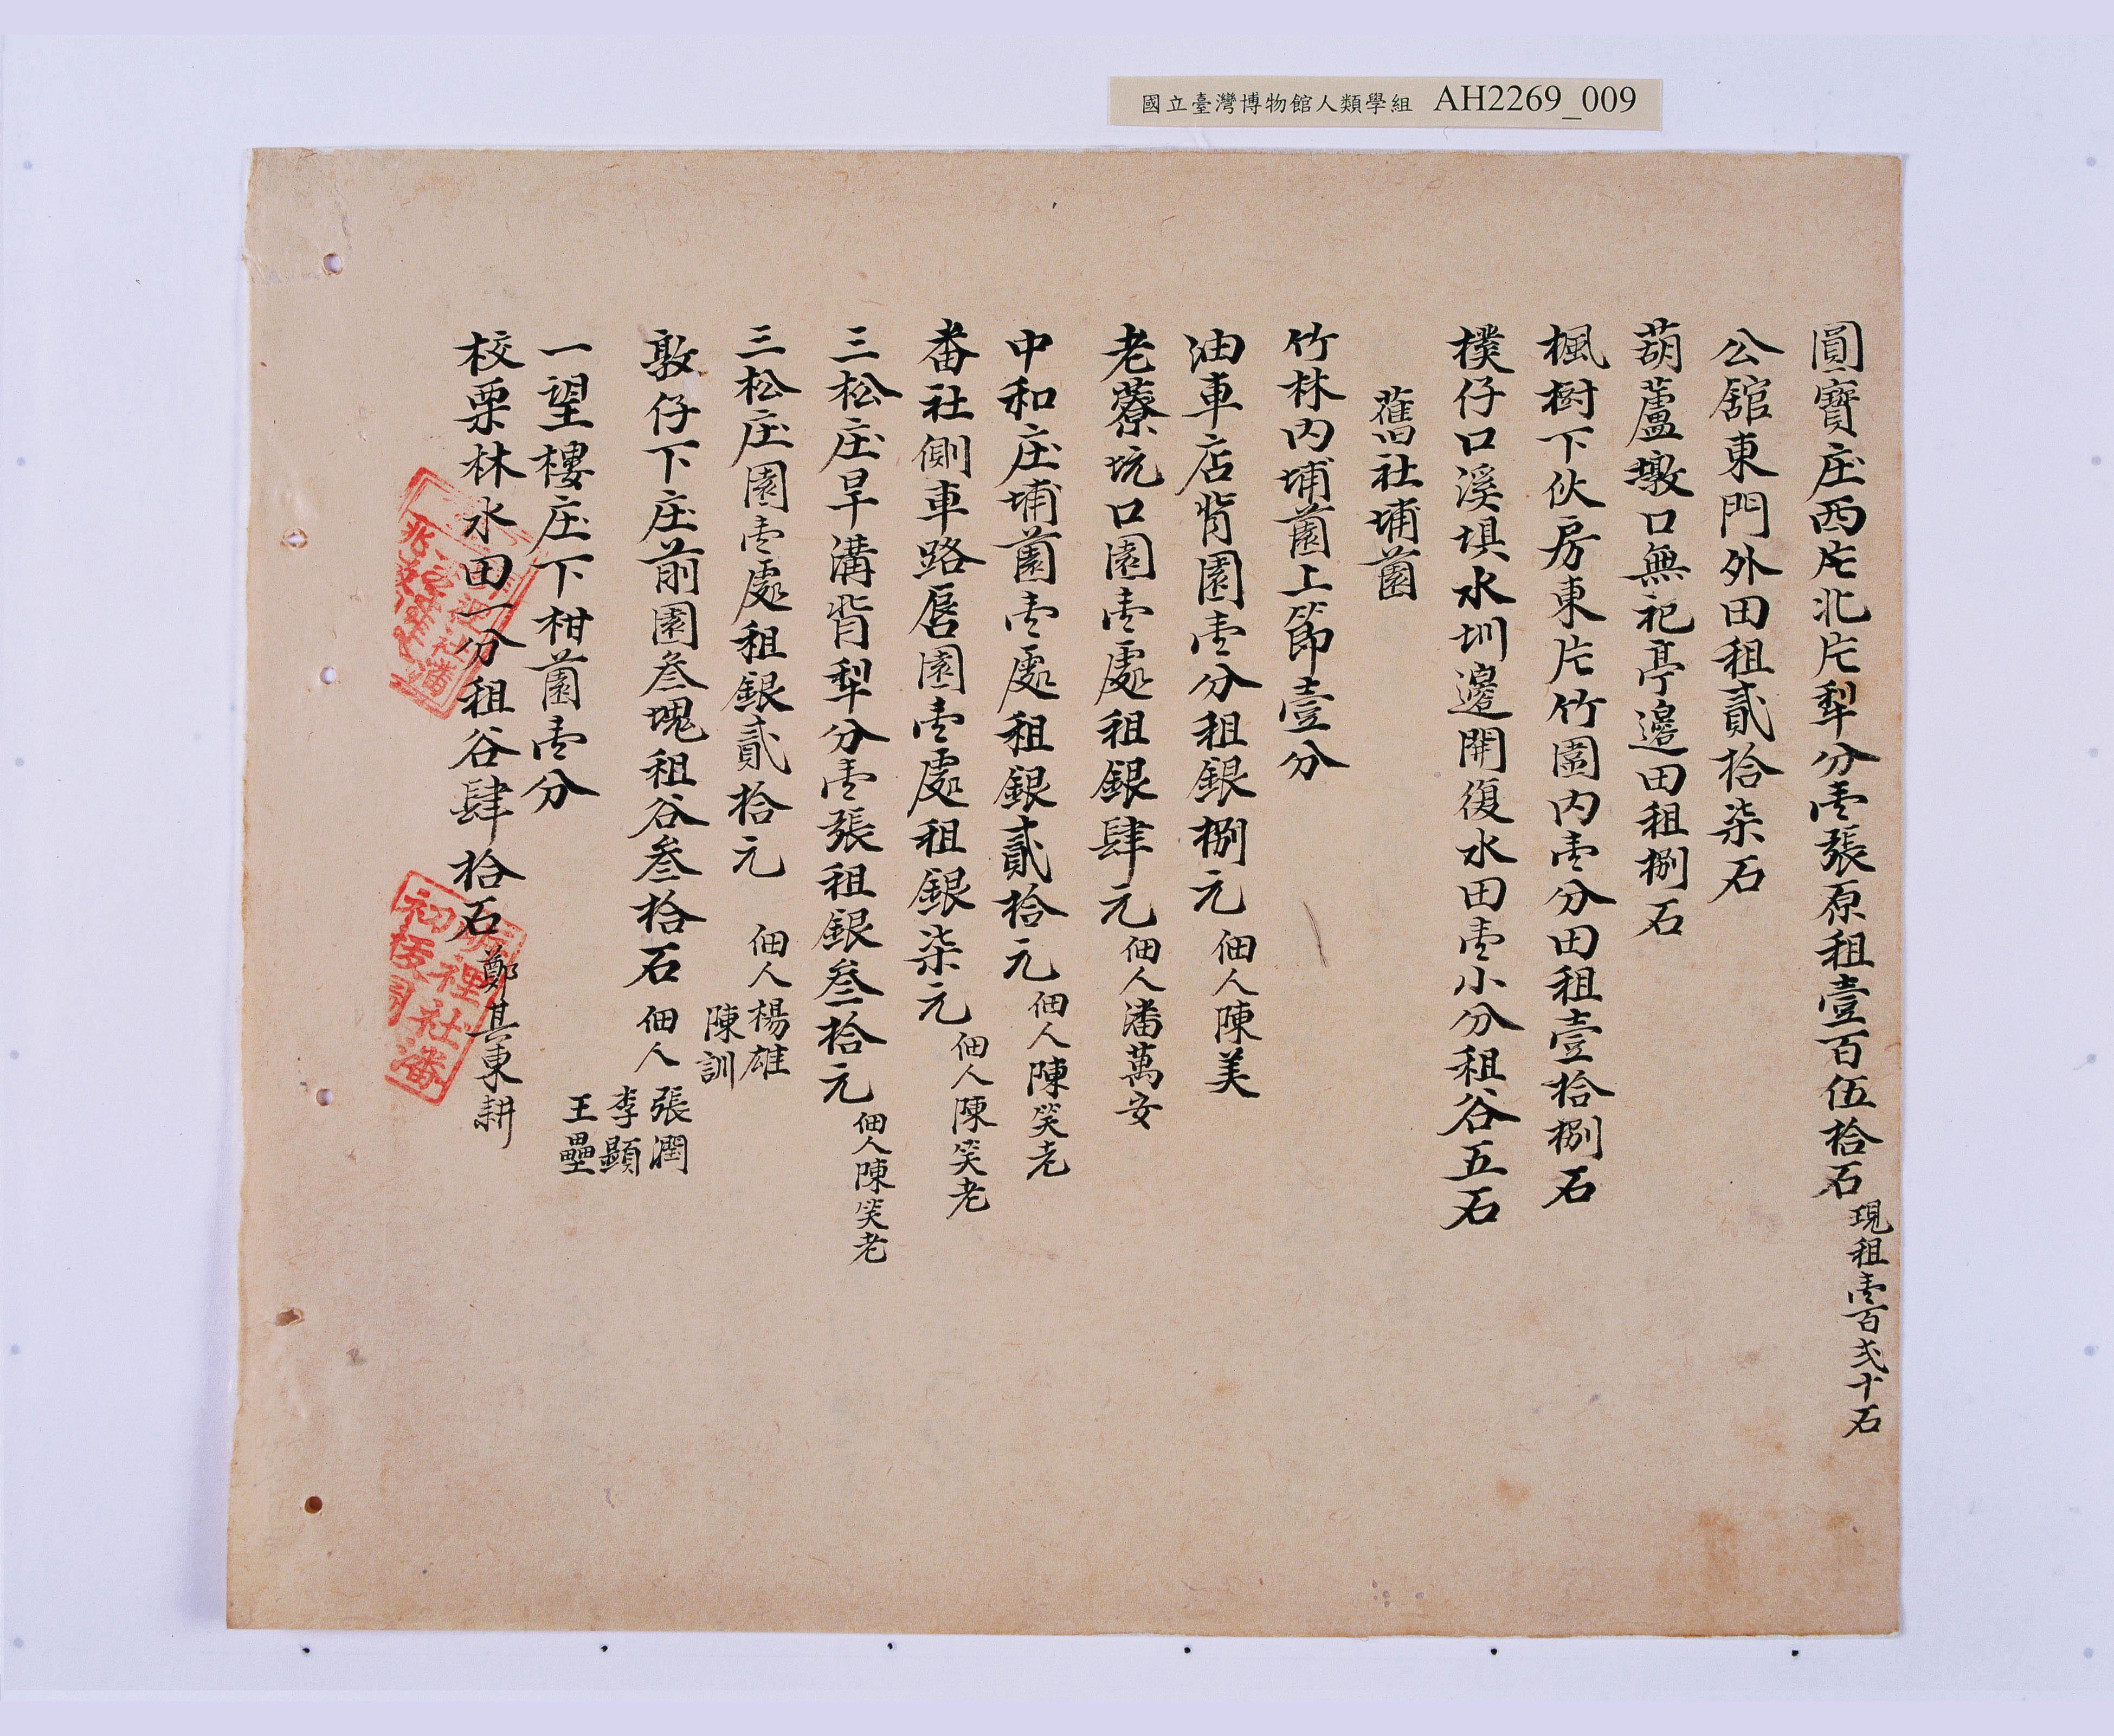 國立臺灣博物館人類學組 AH2269_009
圓寶庄西片北片犁分壹張原租壹百伍拾石 現租壹百弍十石
公舘東門外田租貳拾柒石
葫蘆墩口無祀亭邊田租捌石
楓樹下伙房東片竹圍內壹分田租壹拾捌石
樸仔口溪埧水圳邊開復水田壹小分租谷五石
舊社埔薗
竹林內埔薗上節壹分
油車店背園壹分租銀捌元 佃人陳美
老藔坑口園壹處租銀肆元 佃人潘萬安
中和庄埔薗壹處租銀貳拾元 佃人陳笑老
番社側車路唇園壹處租銀柒元 佃人陳笑老
三松庄旱溝背犁分壹張租銀叁拾元 佃人陳笑老
三松庄園壹處租銀貳拾元 佃人楊雄 陳訓
敦仔下庄前園叁塊租谷叁拾石 佃人張潤 李顯 王壘
一望樓庄下柑薗壹分
校栗林水田一分租谷肆拾石 鄭其東耕
裡社潘